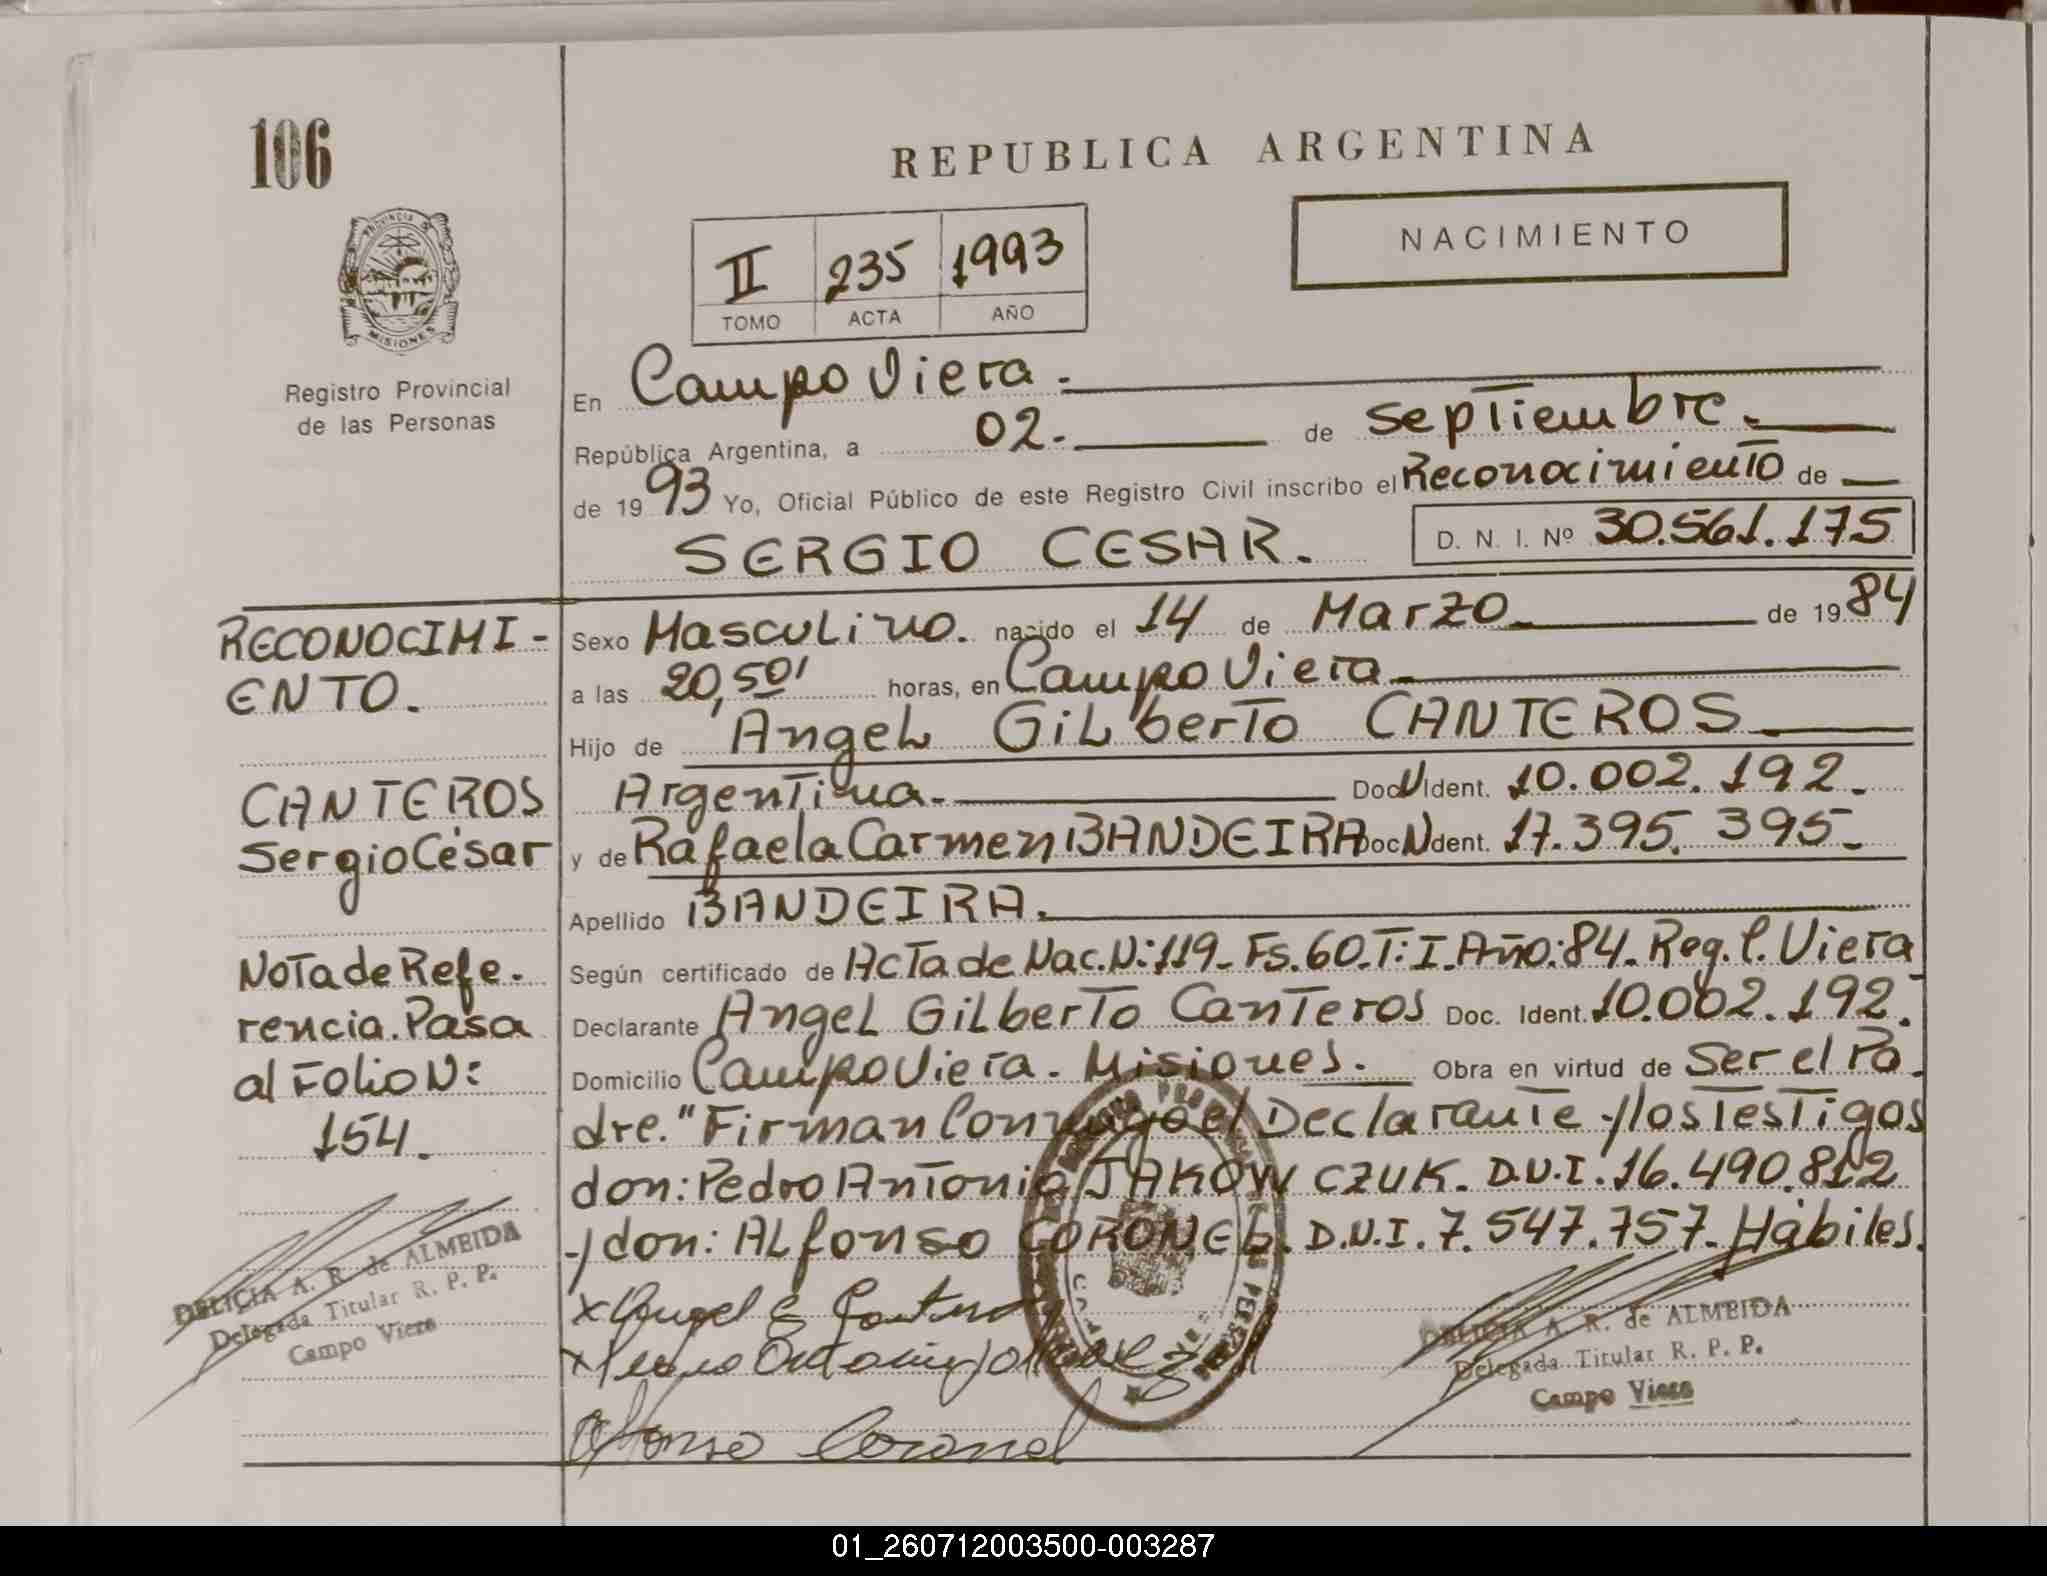 106
REPUBLICA ARGENTINA
NACIMIENTO
II 235 1993
TOMO ACTA AÑO
PROVINCIA DE
MISIONES
Registro Provincial
de las Personas
En Campo Viera.
República Argentina, a 02. de septiembre.
de 1993 Yo, Oficial Público de este Registro Civil inscribo el Reconocimiento de
SERGIO CESAR. D. N. I. Nº 30.561.175
RECONOCIMI-
ENTO.
CANTEROS
Sergio César
Nota de Refe.
rencia. Pasa
al Folio N:
154.
DELICIA A. R. de ALMEIDA
Delegada Titular R. P. P.
Campo Viera
Sexo Masculino. nacido el 14 de Marzo. de 1984
a las 20,50' horas, en Campo Viera.
Hijo de Angel Gilberto CANTEROS
Argentina. Doc N Ident. 10.002.192.
y de Rafaela Carmen BANDEIRA Doc N Ident. 17.395.395.
Apellido BANDEIRA.
Según certificado de Acta de Nac. N: 119. Fs. 60. T: I. Año: 84. Reg. C. Viera
Declarante Angel Gilberto Canteros Doc. Ident. 10.002.192.
Domicilio Campo Viera. Misiones. Obra en virtud de Ser el Pa.
dre." Firman Conmigo el Declarante y los Testigos
don: Pedro Antonio JAKOWCZUK. D.N.I. 16.490.812
y don: Alfonso CORONEL. D.N.I. 7.547.757. Hábiles.
Angel G Canteros
Alfonso Coronel
DELICIA A. R. de ALMEIDA
Delegada Titular R. P. P.
Campo Viera
01_260712003500-003287